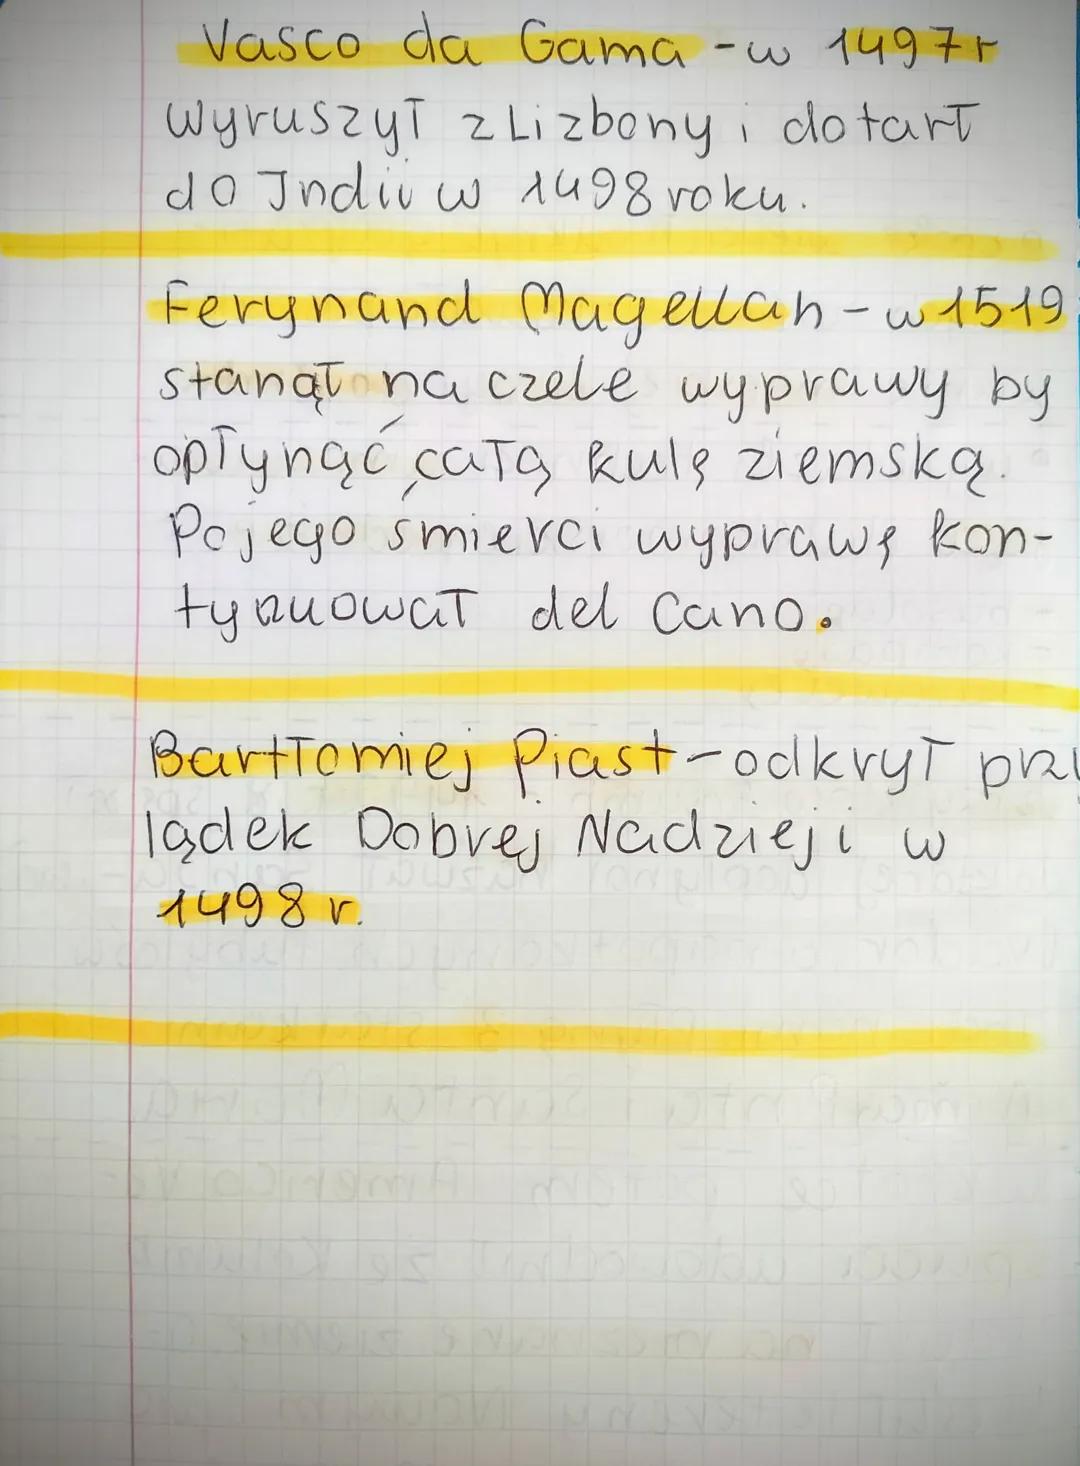 Vasco da Gama - w 1497r
wyruszył z Lizbony i dotarł
do Indii w 1498 roku.
Ferynand Magellan - w 1519
stanął na czele wyprawy by
opłynąć całą kulę ziemską.
Po jego śmierci wyprawę kon-
tynuował del Cano.
Barttomiej Piast - odkrył prz
lądek Dobrej Nadzieji w
1498 r.